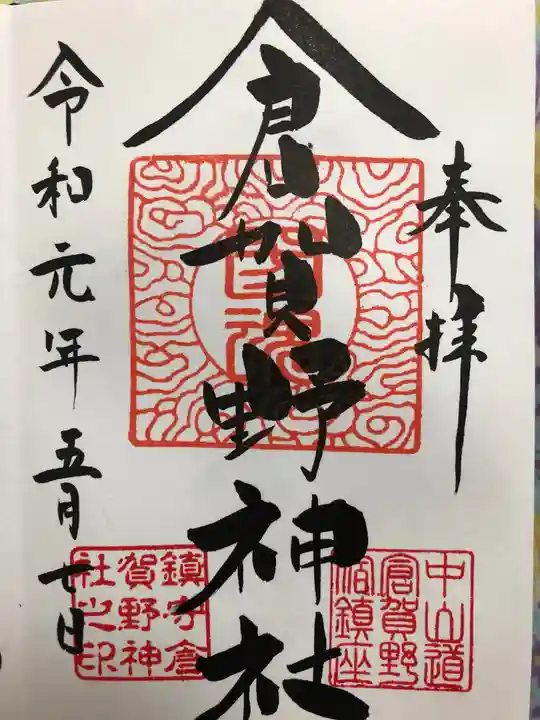 奉拝
倉賀野神社
令和元年五月七日
中山道
倉賀野
宿鎮座
鎮守倉
賀野神
社之印